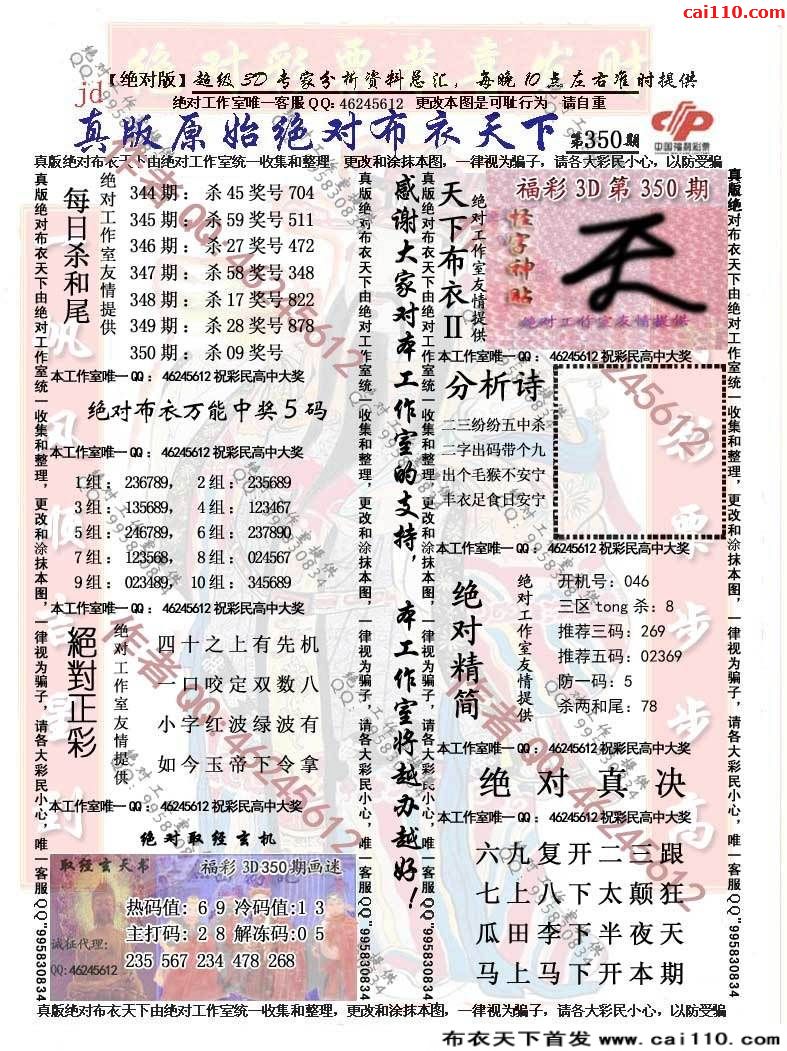 cai110.com
【绝对版】超级3D专家分析资料总汇，每晚10点左右准时提供
jd
绝对工作室唯一客服QQ：46245612 更改本图是可耻行为 请自重
真版原始绝对布衣天下 第350期
中国福利彩票
真版绝对布衣天下由绝对工作室统一收集和整理，更改和涂抹本图，一律视为骗子，请各大彩民小心，以防受骗
真版绝对布衣天下由绝对工作室统一收集和整理，更改和涂抹本图，一律视为骗子，请各大彩民小心，唯一客服QQ"995830834
每日杀和尾
绝对工作室友情提供
344期：杀45奖号704
345期：杀59奖号511
346期：杀27奖号472
347期：杀58奖号348
348期：杀17奖号822
349期：杀28奖号878
350期：杀09奖号
本工作室唯一QQ：46245612祝彩民高中大奖
绝对布衣万能中奖5码
本工作室唯一QQ：46245612祝彩民高中大奖
1组：236789，2组：235689
3组：135689，4组：123467
5组：246789，6组：237890
7组：123568，8组：024567
9组：023489，10组：345689
本工作室唯一QQ：46245612祝彩民高中大奖
絕對正彩
绝对工作室友情提供
四十之上有先机
一口咬定双数八
小字红波绿波有
如今玉帝下令拿
本工作室唯一QQ：46245612祝彩民高中大奖
绝对取经玄机
取经玄天书 福彩3D350期画迷
热码值：69冷码值:13
主打码：28解冻码:05
235 567 234 478 268
诚征代理:
QQ:46245612
真版绝对布衣天下由绝对工作室统一收集和整理，更改和涂抹本图，一律视为骗子，请各大彩民小心，唯一客服QQ"995830834
感谢大家对本工作室的支持，本工作室将越办越好！
真版绝对布衣天下由绝对工作室统一收集和整理，更改和涂抹本图，一律视为骗子，请各大彩民小心，唯一客服QQ"995830834
天下布衣II
绝对工作室友情提供
福彩3D第350期
怪字神贴
绝对工作室友情提供
本工作室唯一QQ：46245612祝彩民高中大奖
分析诗
二三纷纷五中杀
二字出码带个九
出个毛猴不安宁
丰衣足食日安宁
本工作室唯一QQ：46245612祝彩民高中大奖
绝对精简
绝对工作室友情提供
开机号：046
三区tong杀：8
推荐三码：269
推荐五码：02369
防一码：5
杀两和尾：78
本工作室唯一QQ：46245612祝彩民高中大奖
绝对真决
本工作室唯一QQ：46245612祝彩民高中大奖
六九复开二三跟
七上八下太颠狂
瓜田李下半夜天
马上马下开本期
真版绝对布衣天下由绝对工作室统一收集和整理，更改和涂抹本图，一律视为骗子，请各大彩民小心，唯一客服QQ"995830834
真版绝对布衣天下由绝对工作室统一收集和整理，更改和涂抹本图，一律视为骗子，请各大彩民小心，以防受骗
布衣天下首发 www.cai110.com
作者QQ:46245612
绝对工作室提供
QQ:995830834